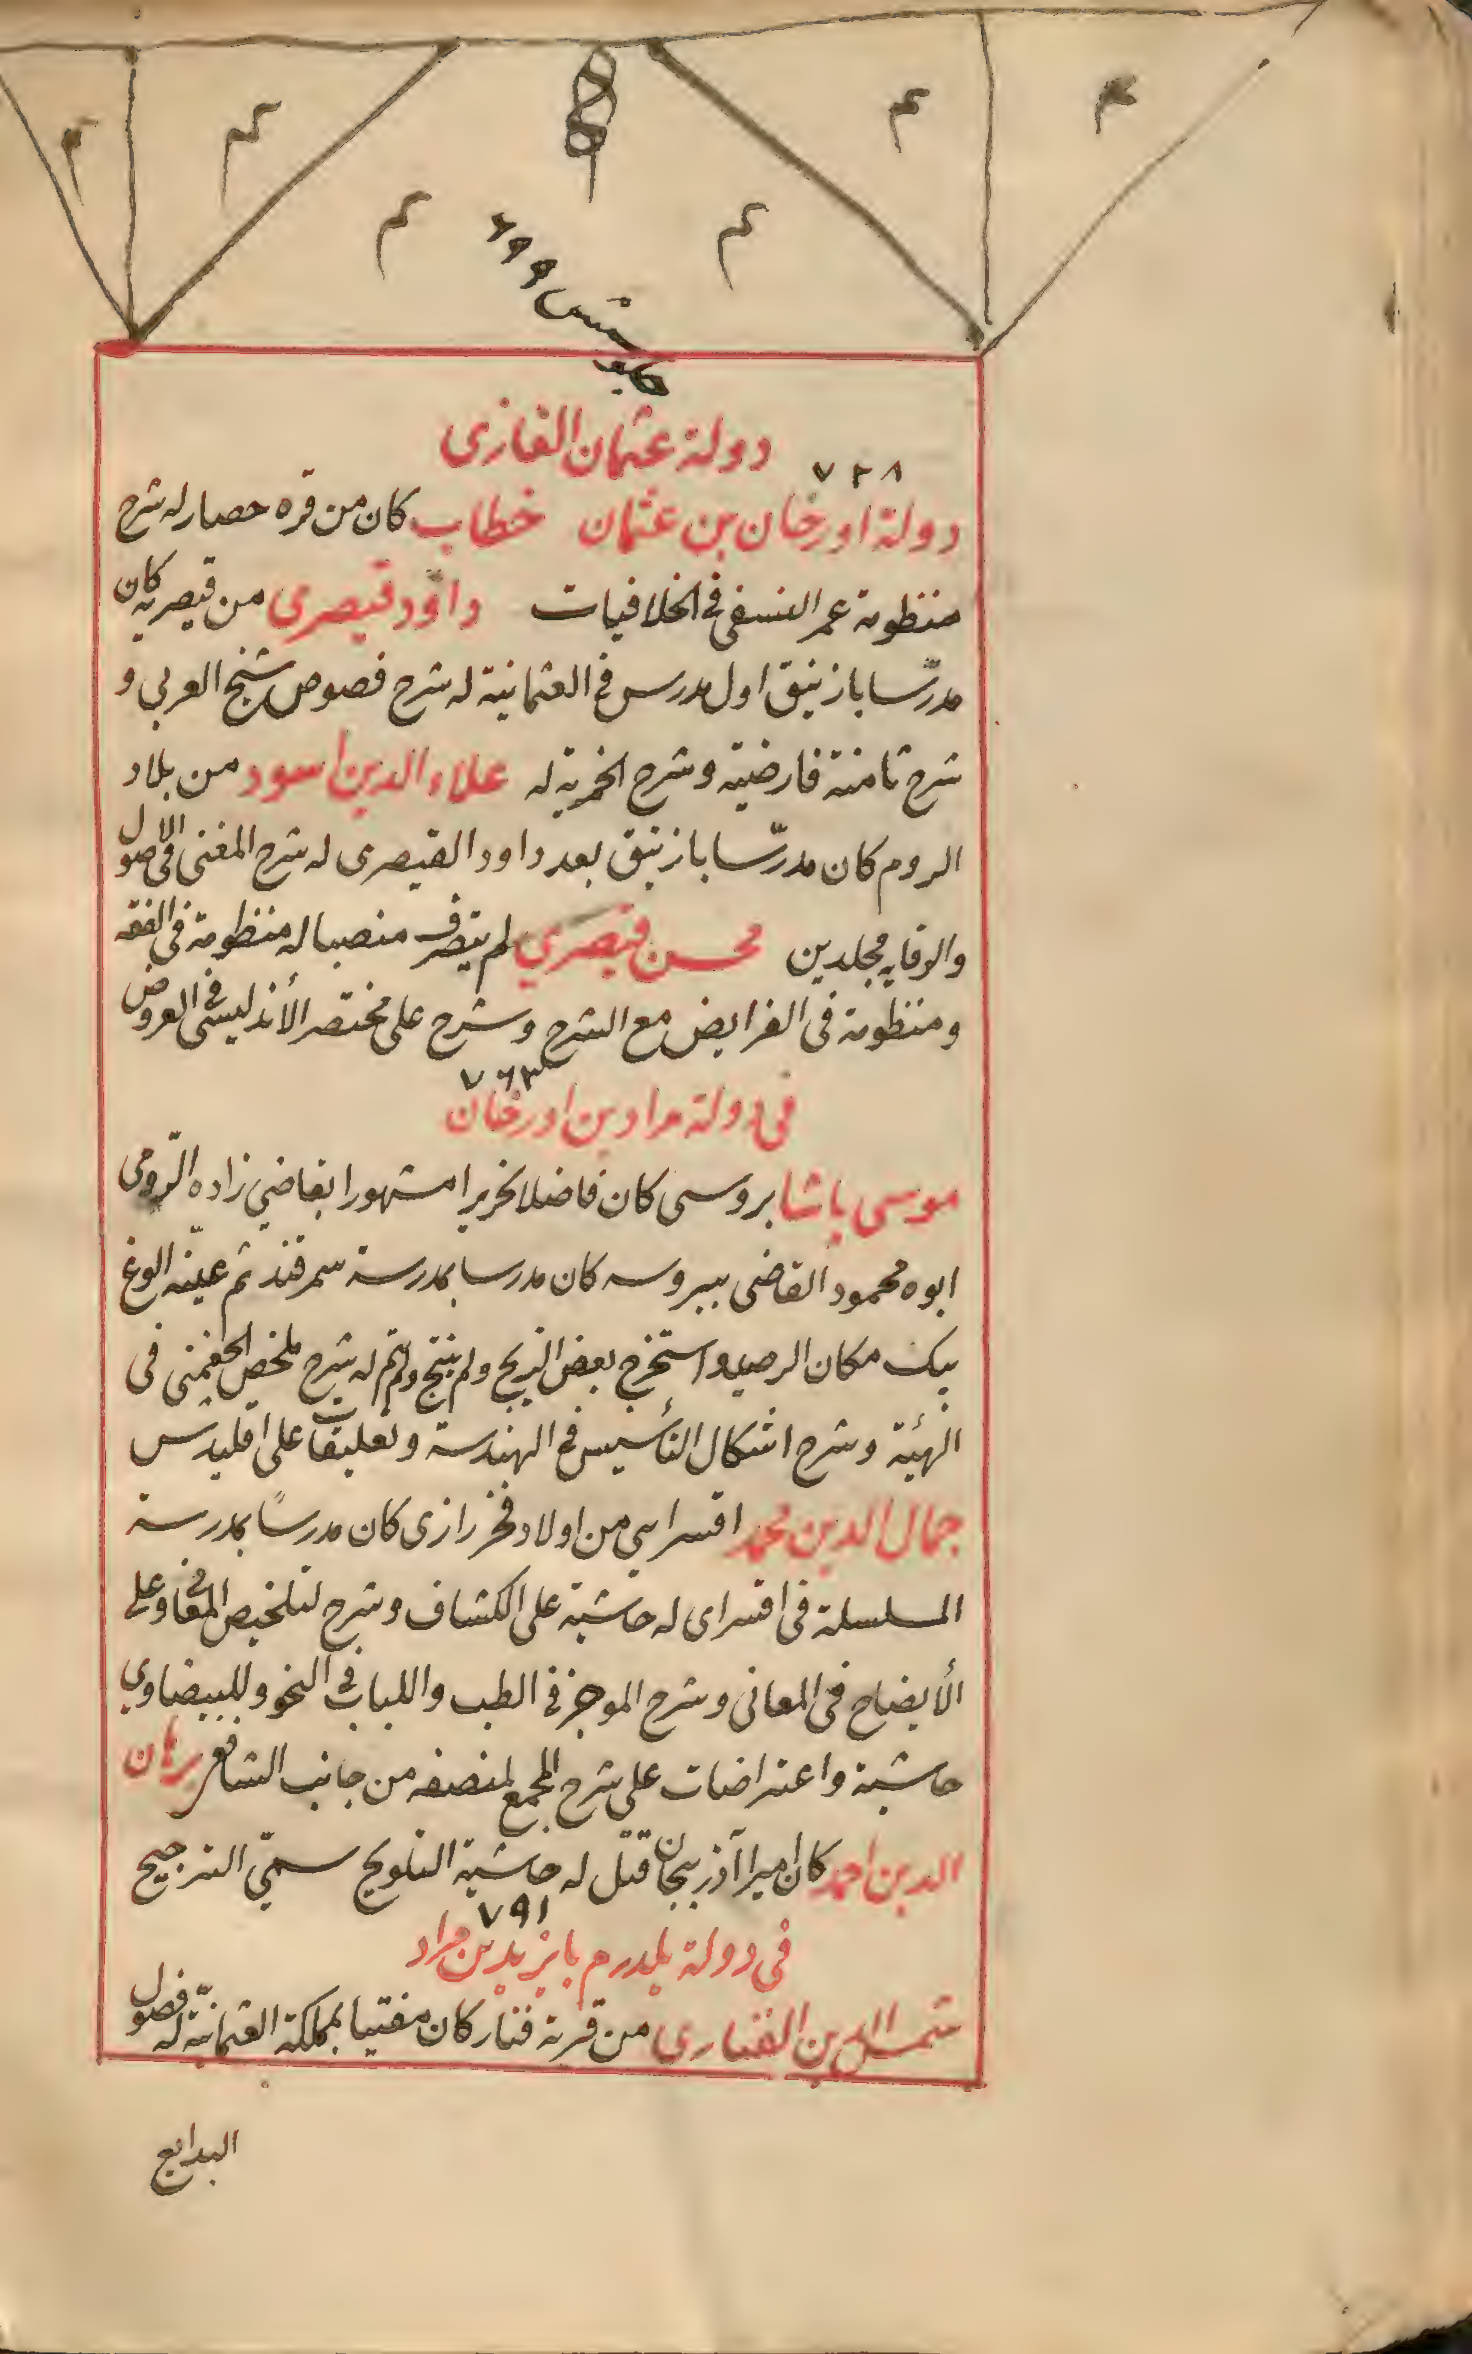 ٦٩٩
دولة عثمان الغازى
٧٢٨
دولة اورخان بن عثمان خطاب كان من قره حصار له شرح
منظومة عمر النسفى فى الخلافيات داود قيصرى من قيصريه كان
مدرّسا بازنيق اول مدرس فى العثمانية له شرح فصوص شيخ العربى و
شرح تامنة فارضية وشرح الخمرية له علاء الدين اسود من بلاد
الروم كان مدرّسا بازنيق بعد داود القيصرى له شرح المغنى فى الاصول
والوقايه مجلدين محسن قيصري لم يتصرف منصبا له منظومة فى الفقه
ومنظومة فى الفرايض مع الشرح وشرح على مختصر الأندليسى فى العروض
٧٦٣
فى دولة مراد بن اورخان
موسى پاشا بروسى كان فاضلا نحريرا مشهورا بقاضى زاده الرّومى
ابوه محمود القاضى ببروسه كان مدرسا بمدرسة سمرقند ثم عيّنه الوغ
بيك مكان الرصد واستخرج بعض الزيج ولم ينتج ولم يتم له شرح ملخص الجغمينى فى
الهيئة وشرح اشكال التأسيس فى الهندسة وتعليقات على اقليدس
جمال الدين محمد اقسرايي من اولاد فخر رازى كان مدرسًا بمدرسة
المسلسلة فى اقسراى له حاشية على الكشاف وشرح لتلخيص المفتاح وعلى
الأيضاح فى المعانى وشرح الموجز فى الطب واللباب فى النحو وللبيضاوي
حاشية واعتراضات على شرح المجمع لمنصفه من جانب الشافعى برهان
الدين احمد كان اميرا آذربيجان قتل له حاشية التلويح سمّى الترجيح
٧٩١
فى دولة يلدرم بايزيد بن مراد
شمس الدين الفنارى من قرية فنار كان مفتيا بمملكة العثمانيّة له فصول
البدايع